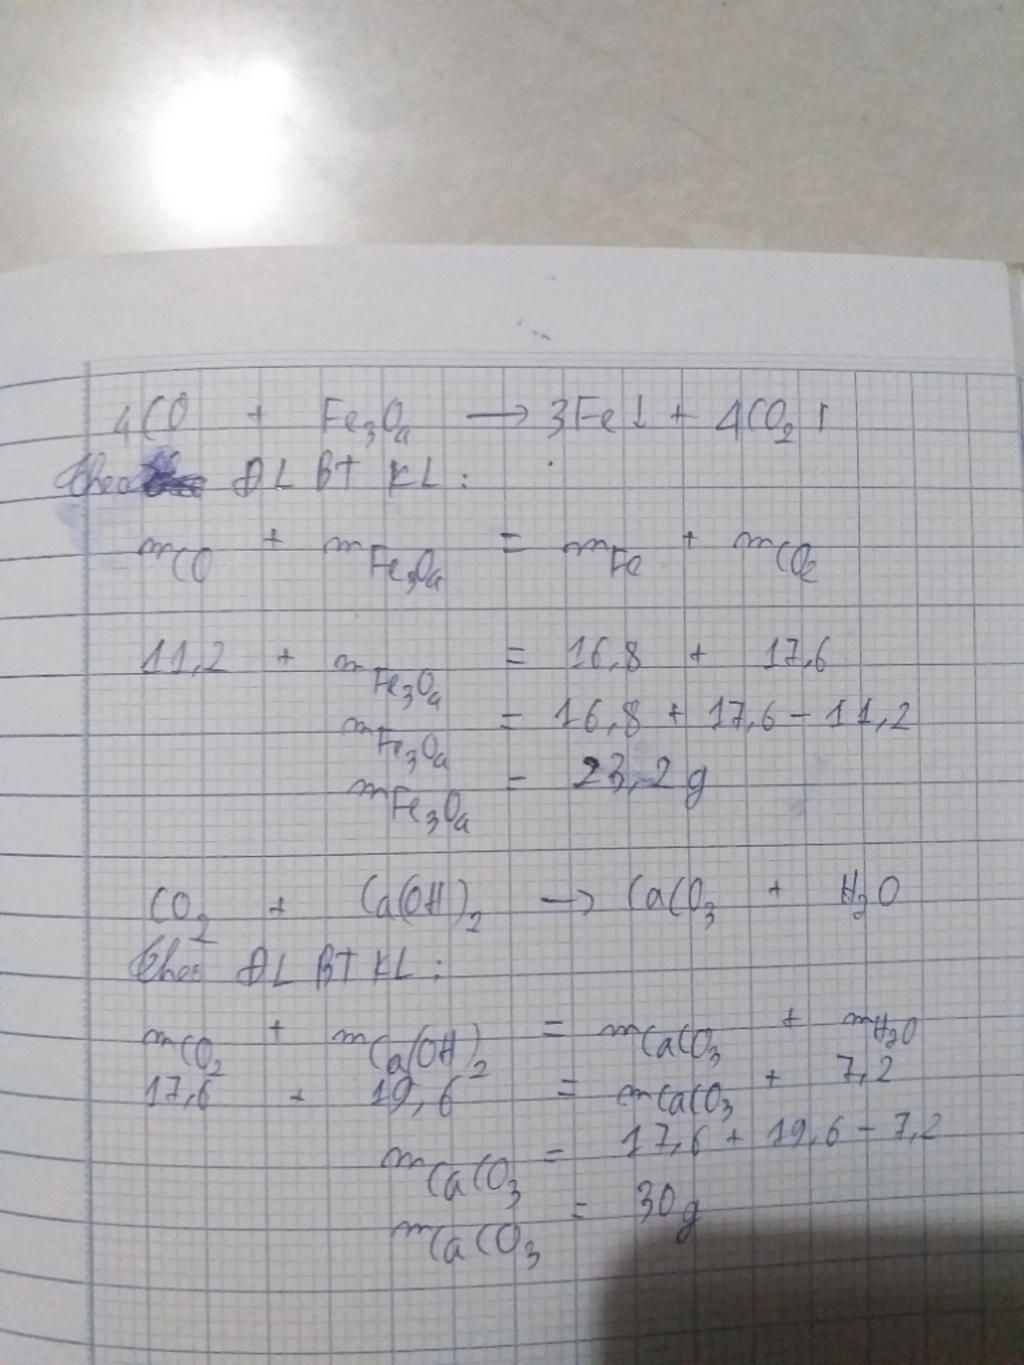 4CO + Fe3O4 → 3Fe↓ + 4CO2↑
theo ĐL BT KL:
mCO + mFe3O4 = mFe + mCO2
11,2 + mFe3O4 = 16,8 + 17,6
mFe3O4 = 16,8 + 17,6 - 11,2
mFe3O4 = 23,2 g
CO2 + Ca(OH)2 → CaCO3 + H2O
theo ĐL BT KL:
mCO2 + mCa(OH)2 = mCaCO3 + mH2O
17,6 + 19,6 = mCaCO3 + 7,2
mCaCO3 = 17,6 + 19,6 - 7,2
mCaCO3 = 30g